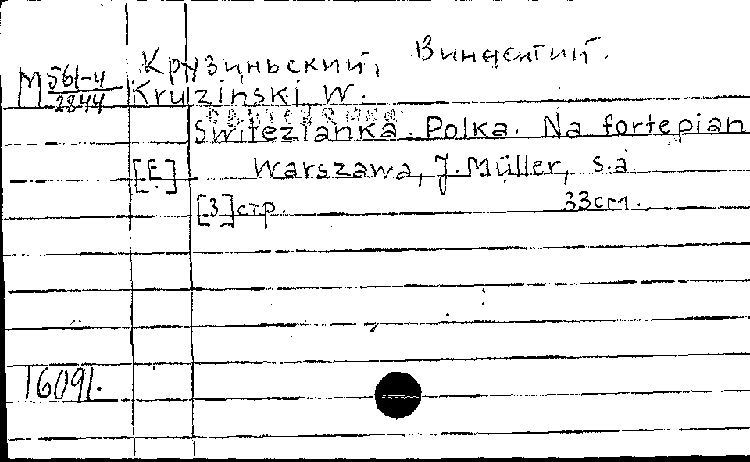 Крузиньский, Винцентий.
М 561-4
2844
Kruzinski, W.
Switezianka. Polka. Na fortepian
[E] Warszawa, J. Müller, s.a
[3] стр. 33 см.
16091.